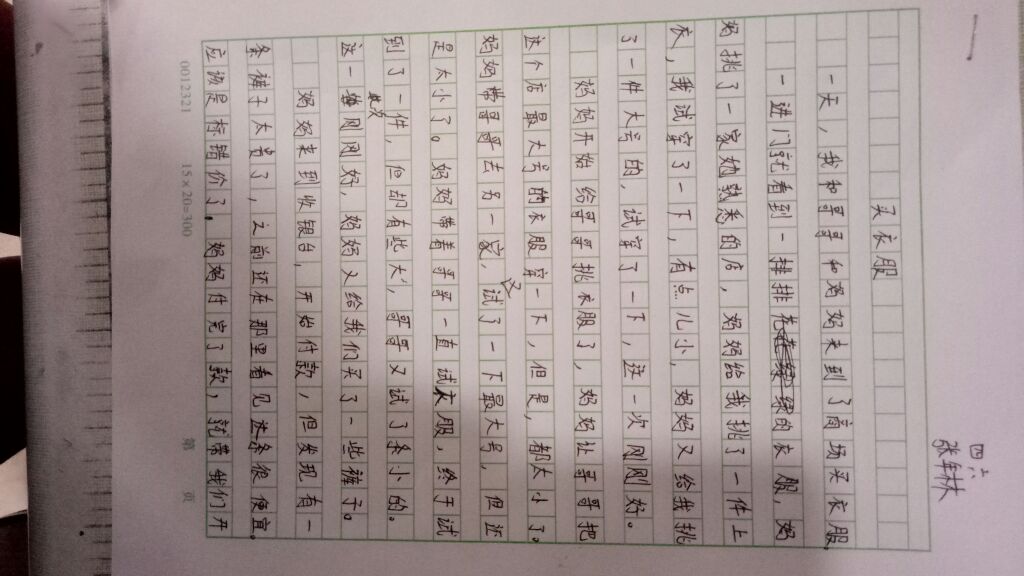 四六
张轩林
买衣服
一天，我和哥哥和妈妈来到了商场买衣服。
一进门就看到一排排的衣服，妈
妈挑了一家她熟悉的店，妈妈给我挑了一件上
衣，我试穿了一下，有点儿小，妈妈又给我挑
了一件大号的，试穿了一下，这一次刚刚好。
妈妈开始给哥哥挑衣服了，妈妈让哥哥把
这个店最大号的衣服穿一下，但是，都太小了。
妈妈带哥哥去另一家，又试了一下最大号，但还
是太小了。妈妈带着哥哥一直试衣服，终于试
到了一件，但却有些大，哥哥又试了条小的。
这一次刚刚好，妈妈又给我们买了一些裤子。
妈妈来到收银台，开始付款，但发现有一
条裤子太贵了，之前还在那里看见这条很便宜。
应该是标错价了。妈妈付完了款，就带我们开
0012321 15×20=300 第 页